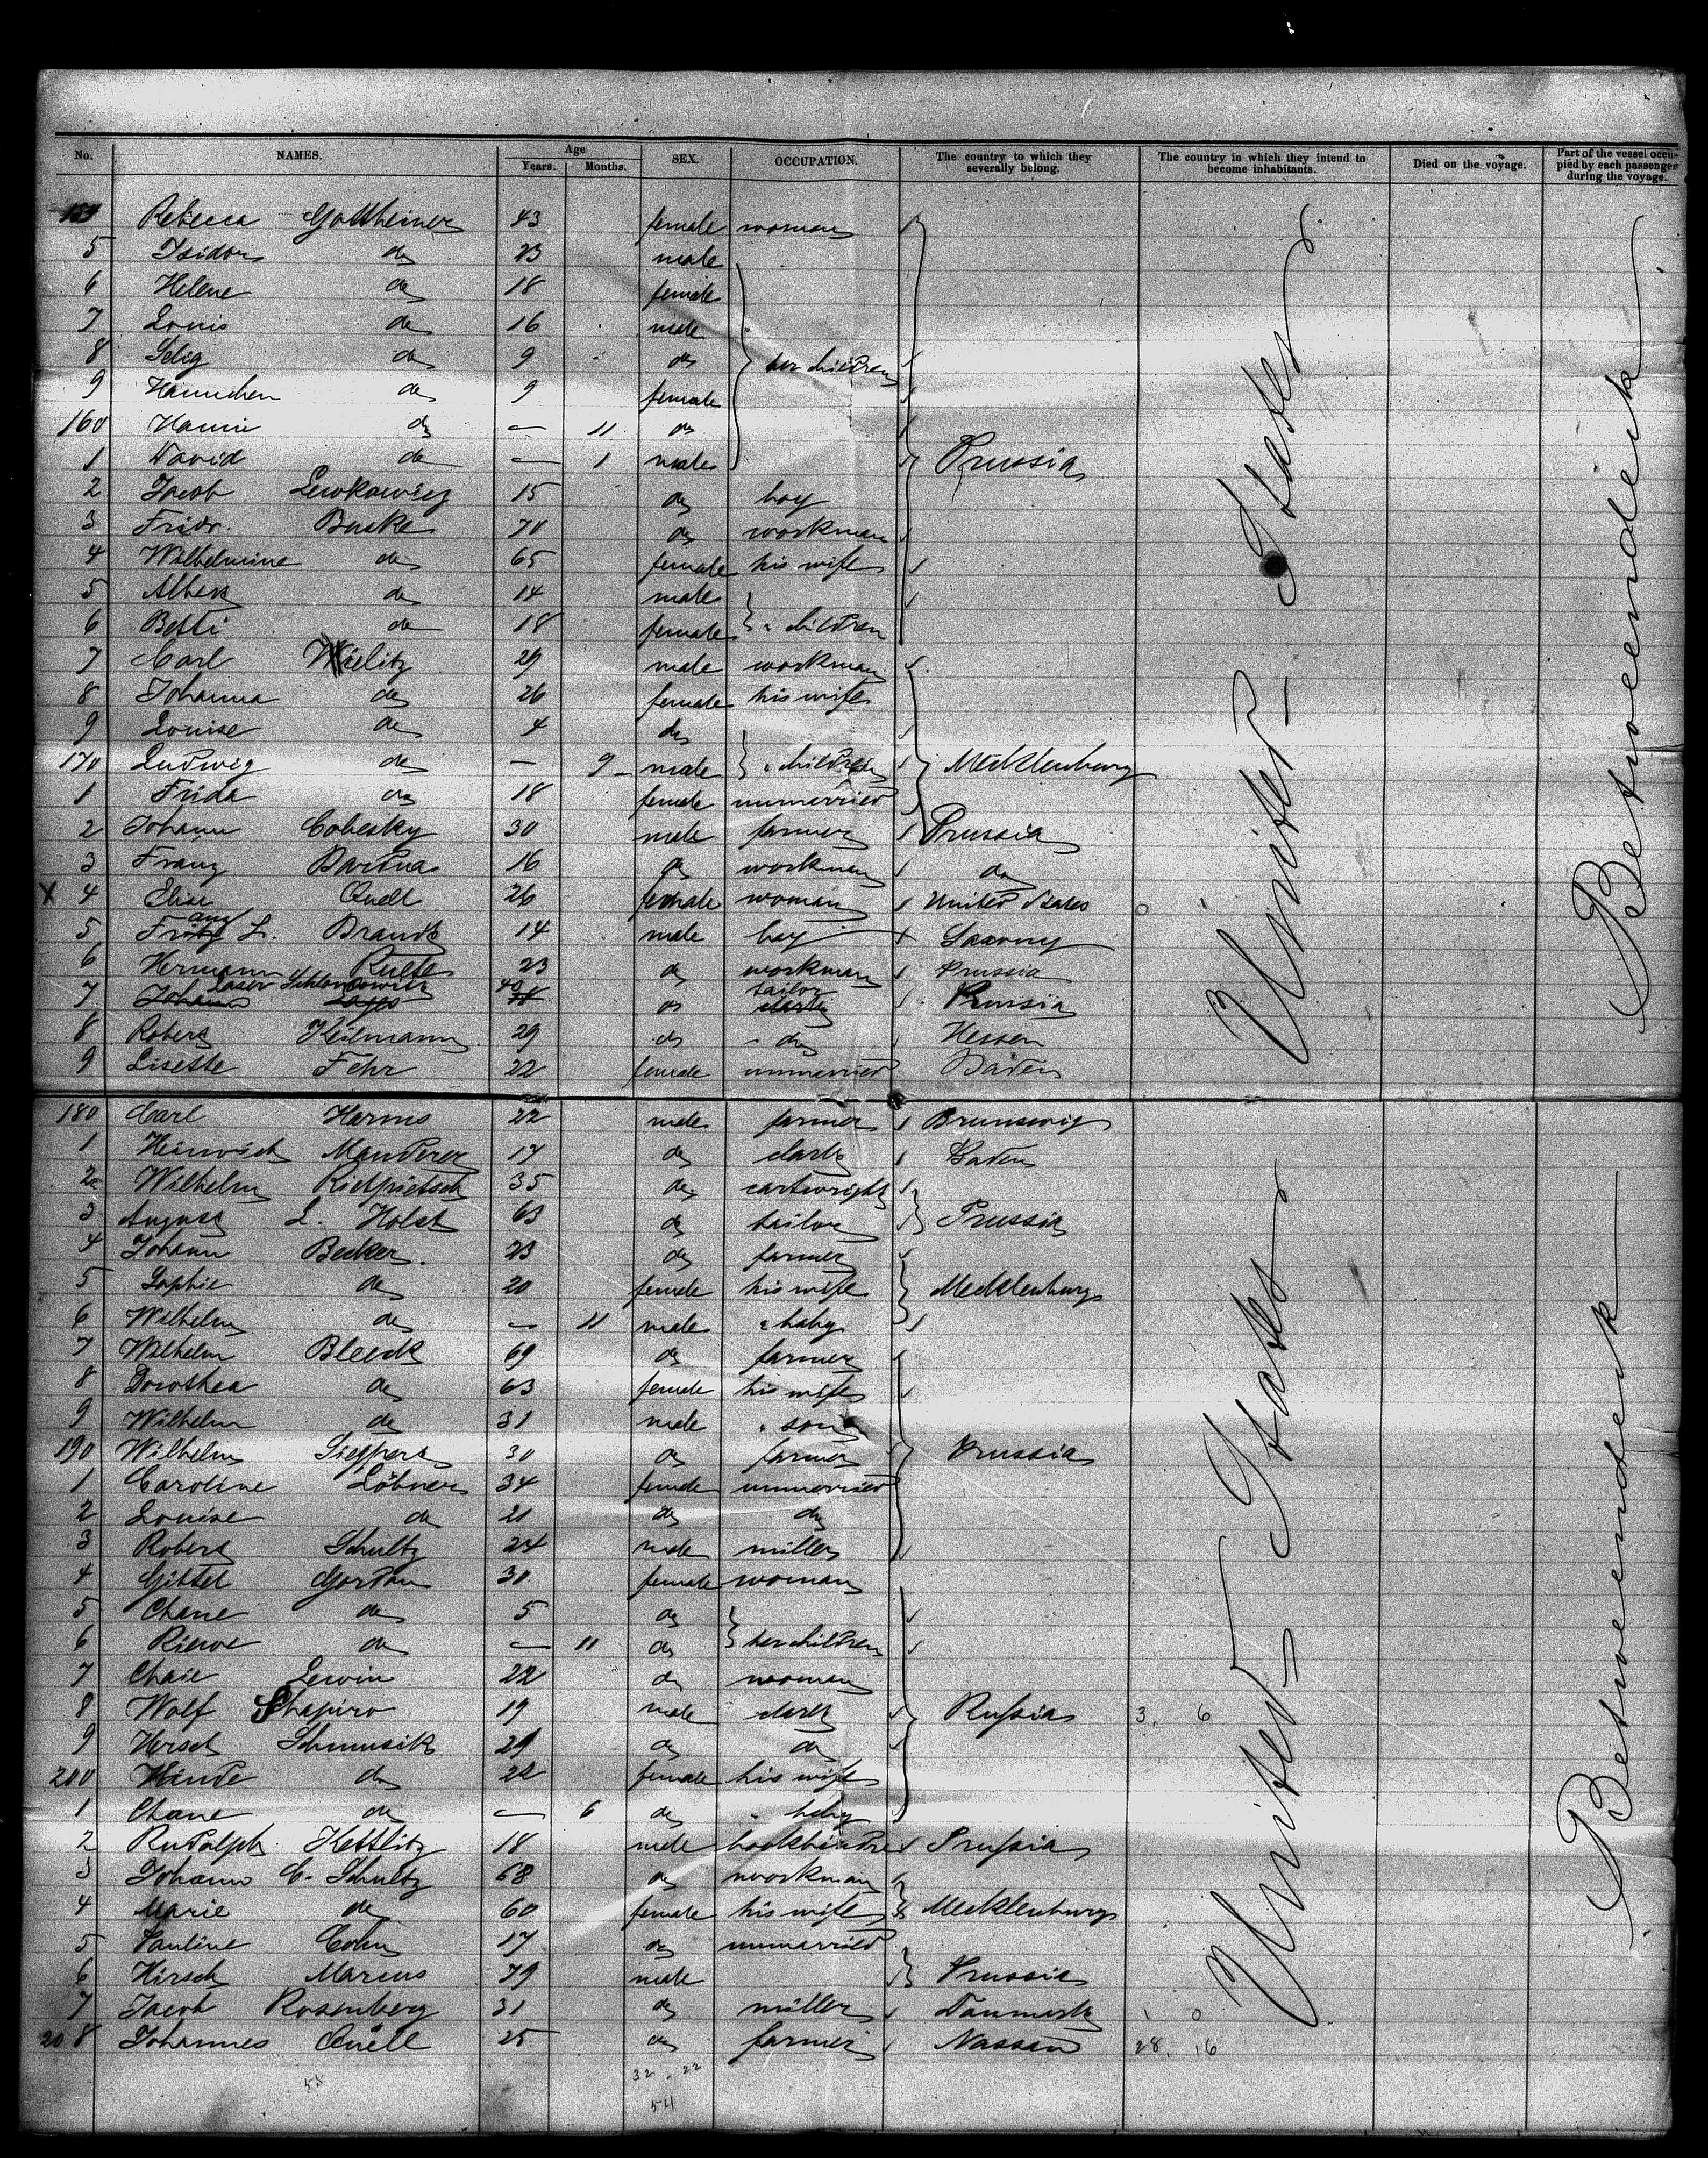 No. NAMES. Age Years. Months. SEX. OCCUPATION. The country to which they severally belong. The country in which they intend to become inhabitants. Died on the voyage. Part of the vessel occupied by each passenger during the voyage.
154 Rebecca Gottheiner 43 female woman
5 Isidor do 23 male
6 Helene do 18 female
7 Louis do 16 male
8 Selig do 9 do her children
9 Hannchen do 9 female
160 Hanni do — 11 do
1 David do — 1 male Prussia
2 Jacob Lewkowicz 15 do boy
3 Fridr. Buske 70 do workman
4 Wilhelmine do 65 female his wife
5 Albert do 14 male
6 Betti do 18 female " children
7 Carl Wielitz 29 male workman
8 Johanna do 26 female his wife
9 Louise do 4 do
170 Ludwig do — 9 male " children Mecklenburg
1 Frida do 18 female unmarried
2 Johann Cobesky 30 male farmer Prussia
3 Franz 16 do workman do
X 4 Elise Quell 26 female woman United States 0
5 Franz L. Brandt 14 male boy Saxony
6 Hermann 23 do workman Prussia
7 Laser 40 do tailor Prussia
8 Robert Heilmann 29 do " do Hessen
9 Lisette Fehr 22 female unmarried Baden
United States
Betweendeck
180 Carl Harms 22 male farmer Brunswig
1 Heinrich Manderer 17 do clark Baden
2 Wilhelm Rietpietsch 35 do cartwright
3 August L. Holst 63 do tailor Prussia
4 Johann Becker 23 do farmer
5 Sophie do 20 female his wife Mecklenburg
6 Wilhelm do — 11 male " baby
7 Wilhelm Bleeck 69 do farmer
8 Dorothea do 63 female his wife
9 Wilhelm do 31 male " son
190 Wilhelm Sieffers 30 do farmer Prussia
1 Caroline Löbner 34 female unmarried
2 Louise do 21 do do
3 Robert Schultz 24 male miller
4 Gittel Gordon 30 female woman
5 Chane do 5 do
6 Riewe do — 11 do her children
7 Chaie Lewin 22 do woman
8 Wolf Shapiro 19 male clark Russia 3. 6
9 Hersch Schmusik 29 do do
200 Hinde do 22 female his wife
1 Chane do — 6 do " baby
2 Rudolph Kettlitz 18 male bookbinder Prussia
3 Johann C. Schultz 68 do workman
4 Marie do 60 female his wife Mecklenburg
5 Pauline Cohn 17 do unmarried
6 Hirsch Marcus 79 male Prussia
7 Jacob Rosenberg 31 do müller Danmark 1 0
208 Johannes Quell 25 do farmer Nassau 28. 16
United States
Betweendeck
32 . 22
54